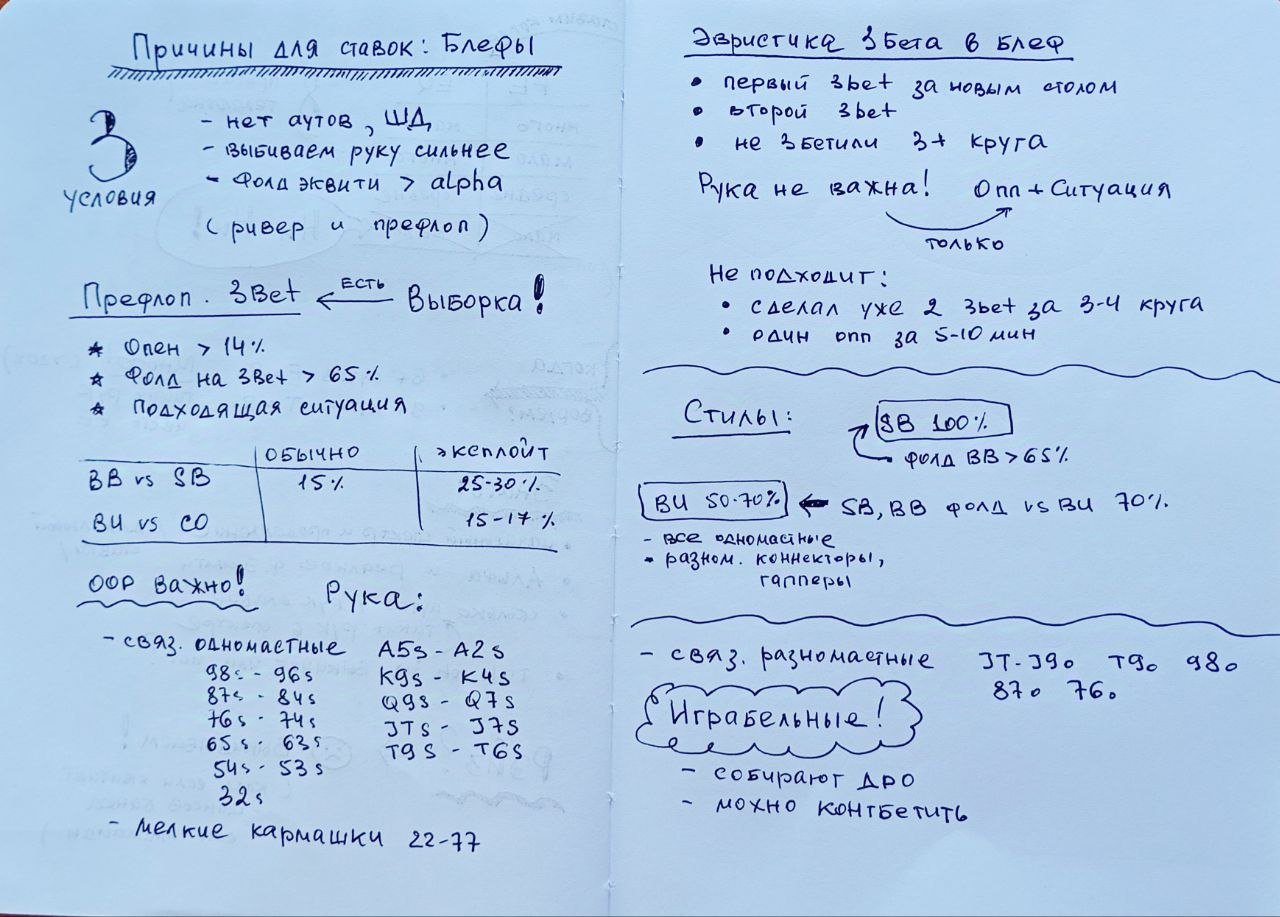 Причины для ставок: Блефы
3 условия
- нет аутов, ШД
- выбиваем руку сильнее
- Фолд эквити > alpha
(ривер и префлоп)
Префлоп. 3Bet ← есть Выборка!
* Опен > 14%
* Фолд на 3Bet > 65%
* Подходящая ситуация
обычно эксплойт
BB vs SB 15% 25-30%
BU vs CO 15-17%
OOP важно! Рука:
- связ. одномастные A5s - A2s
98s - 96s K9s - K4s
87s - 84s Q9s - Q7s
76s - 74s JTs - J7s
65s - 63s T9s - T6s
54s - 53s
32s
- мелкие кармашки 22-77
Эвристика 3бета в Блеф
• первый 3bet за новым столом
• второй 3bet
• не 3бетили 3+ круга
Рука не важна! Опп + Ситуация
только
Не подходит:
• сделал уже 2 3bet за 3-4 круга
• один опп за 5-10 мин
Стилы: SB 100%
фолд BB > 65%
BU 50-70% ← SB, BB фолд vs BU 70%
- все одномастные
• разном. коннекторы,
гапперы
- связ. разномастные JT-J9o T9o 98o
87o 76o
Играбельные!
- собирают дро
- можно контбетить